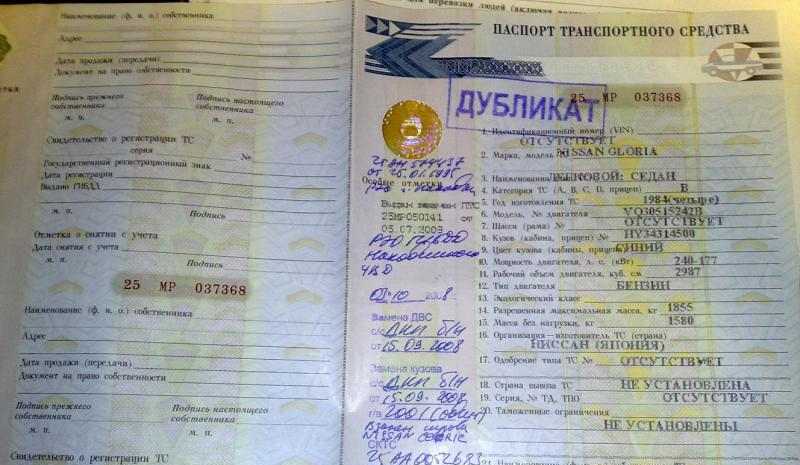 Наименование (ф. и. о.) собственника
Адрес
Дата продажи (передачи)
Документ на право собственности
Подпись прежнего собственника
Подпись настоящего собственника
м. п.
м. п.
Свидетельство о регистрации ТС
серия
№
Государственный регистрационный знак
Дата регистрации
Выдано ГИБДД
м. п.
Подпись
Отметка о снятии с учета
Дата снятия с учета
м. п.
Подпись
25 МР 037368
Наименование (ф. и. о.) собственника
Адрес
Дата продажи (передачи)
Документ на право собственности
Подпись прежнего собственника
Подпись настоящего собственника
м. п.
м. п.
Свидетельство о регистрации ТС
для перевозки людей (включая
ПАСПОРТ ТРАНСПОРТНОГО СРЕДСТВА
ДУБЛИКАТ
25 МР 037368
1. Идентификационный номер (VIN)
ОТСУТСТВУЕТ
2. Марка, модель NISSAN GLORIA
3. Наименование ЛЕГКОВОЙ: СЕДАН
4. Категория ТС (А, В, С, D, прицеп) В
5. Год изготовления ТС 1984(четыре)
6. Модель, № двигателя VQ30515242B
7. Шасси (рама) № ОТСУТСТВУЕТ
8. Кузов (кабина, прицеп) № HY34314500
9. Цвет кузова (кабины, прицепа) СИНИЙ
10. Мощность двигателя, л. с. (кВт) 240-177
11. Рабочий объем двигателя, куб. см 2987
12. Тип двигателя БЕНЗИН
13. Экологический класс
14. Разрешенная максимальная масса, кг 1855
15. Масса без нагрузки, кг 1580
16. Организация—изготовитель ТС (страна)
НИССАН (ЯПОНИЯ)
17. Одобрение типа ТС № ОТСУТСТВУЕТ
18. Страна вывоза ТС НЕ УСТАНОВЛЕНА
19. Серия, № ТД, ТПО ОТСУТСТВУЕТ
20. Таможенные ограничения
НЕ УСТАНОВЛЕНЫ
Особые отметки
Выдан взамен ПТС
25МР050141 от
05.07.2009
Замена ДВС
с/с ДКП б/н
от 15.09.2008
Замена кузова
с/с ДКП б/н
от 15.09.2008
г/в 2001
СКТС